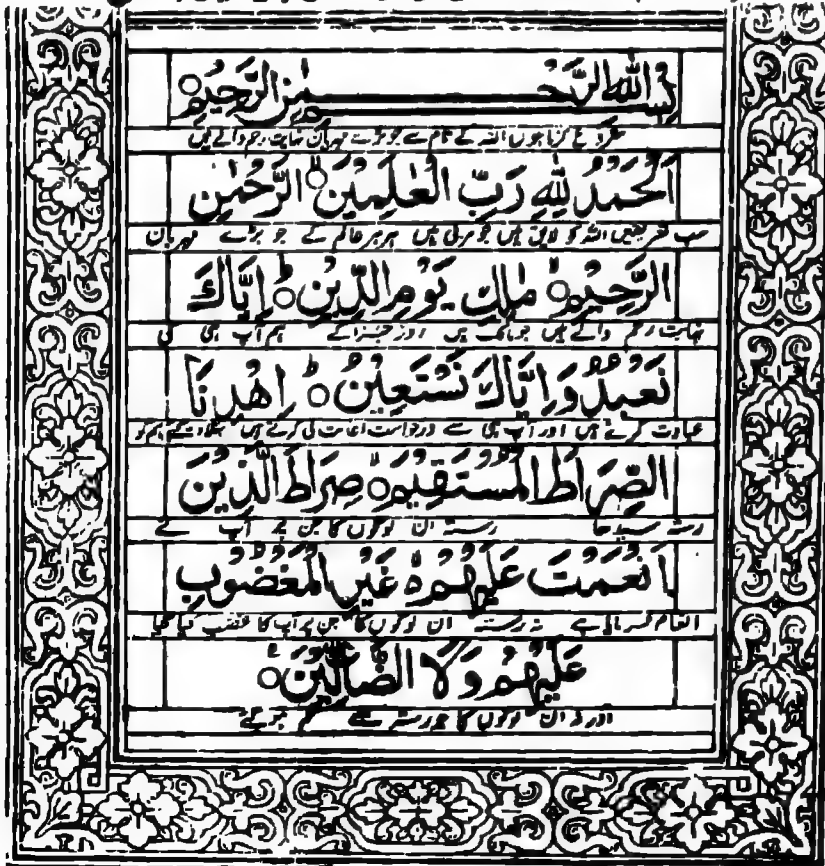 بِسْمِ اللهِ الرَّحْمٰنِ الرَّحِيْمِ
شروع کرتا ہوں اللہ کے نام سے جو بڑے مہربان نہایت رحم والے ہیں
اَلْحَمْدُ لِلّٰهِ رَبِّ الْعٰلَمِيْنَ ۙ الرَّحْمٰنِ
سب تعریفیں اللہ کو لائق ہیں جو مربی ہیں ہر ہر عالم کے جو بڑے مہربان
الرَّحِيْمِ ۙ مٰلِكِ يَوْمِ الدِّيْنِ ؕ اِيَّاكَ
نہایت رحم والے ہیں جو مالک ہیں روز جزا کے ہم آپ ہی کی
نَعْبُدُ وَاِيَّاكَ نَسْتَعِيْنُ ؕ اِهْدِنَا
عبادت کرتے ہیں اور آپ ہی سے درخواست اعانت کی کرتے ہیں بتلا دیجئے ہم کو
الصِّرَاطَ الْمُسْتَقِيْمَ ۙ صِرَاطَ الَّذِيْنَ
رستہ سیدھا رستہ ان لوگوں کا جن پر آپ نے
اَنْعَمْتَ عَلَيْهِمْ ۙ غَيْرِ الْمَغْضُوْبِ
انعام فرمایا ہے نہ رستہ ان لوگوں کا جن پر آپ کا غضب کیا گیا
عَلَيْهِمْ وَلَا الضَّآلِّيْنَ ۠
اور نہ ان لوگوں کا جو رستہ سے گم ہو گئے